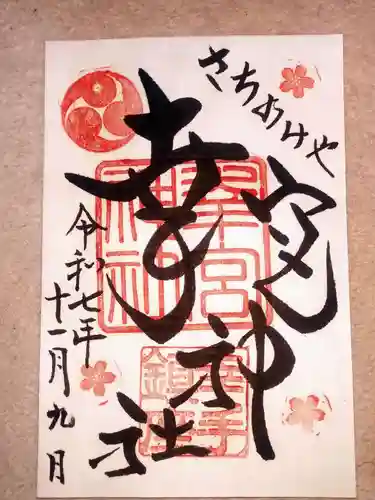 さちのみや
幸宮神社
令和七年
十一月九日
幸宮
神社
幸手
鎮座